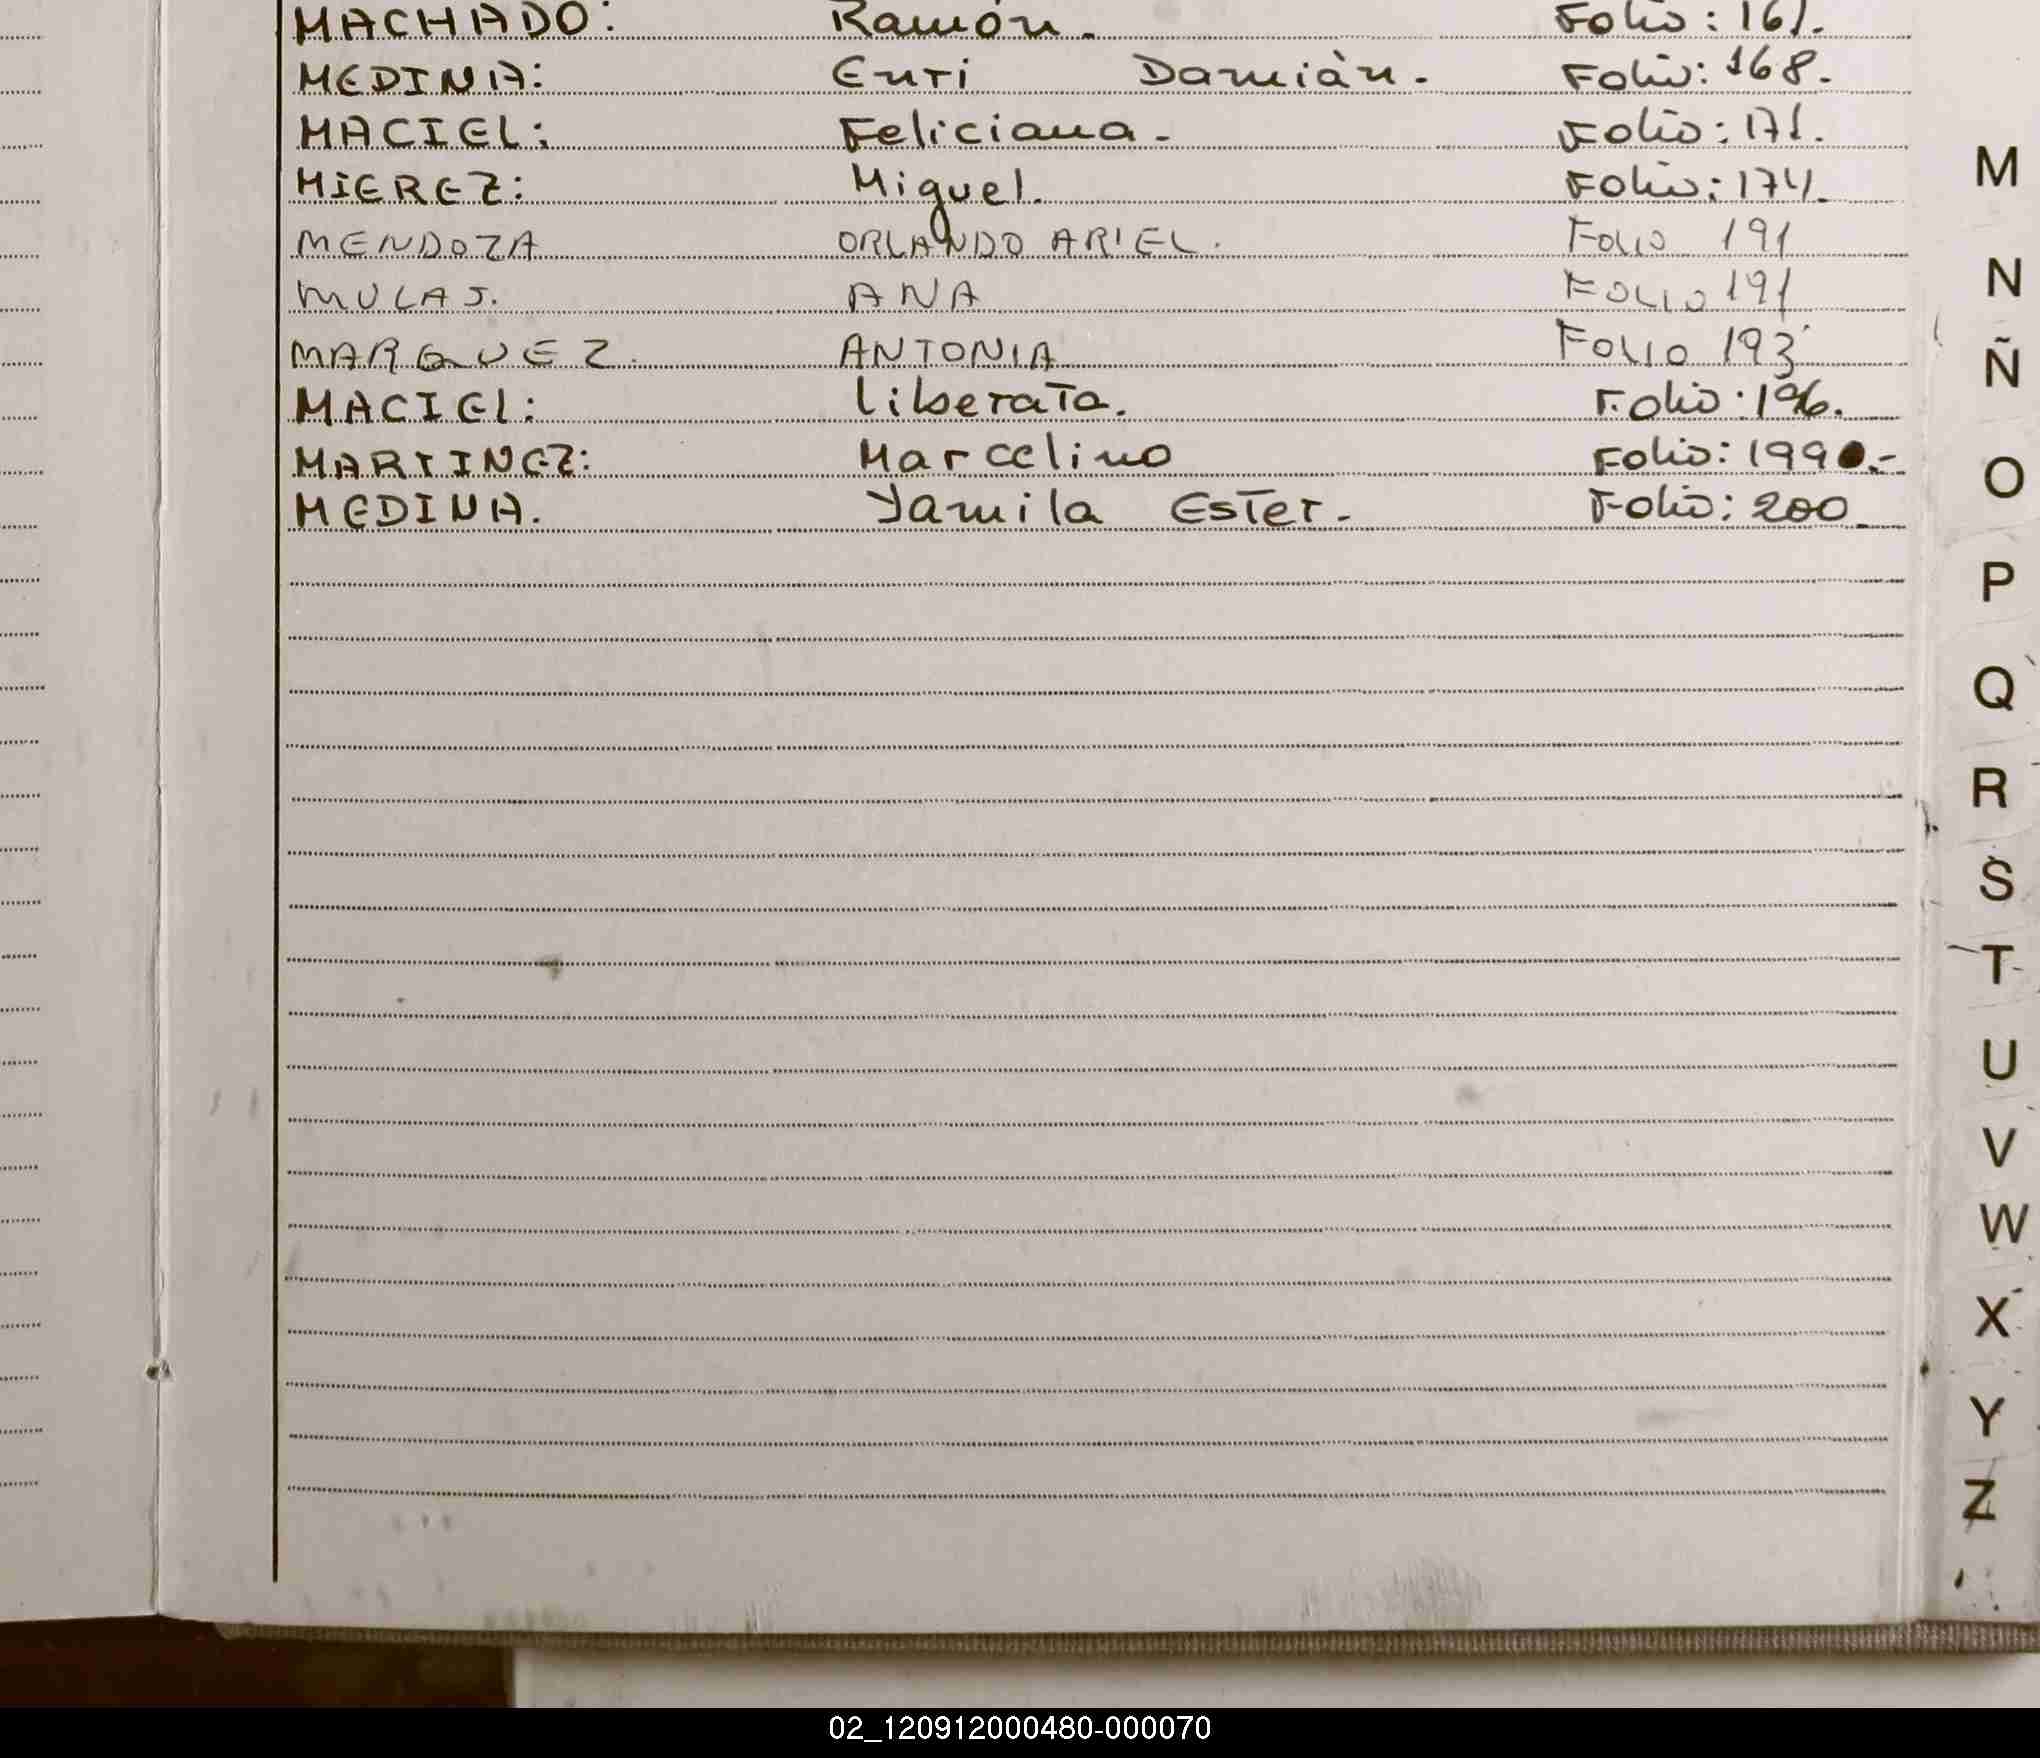 MACHADO: Ramón. Folio: 161.
MEDINA: Enri Damián. Folio: 168.
MACIEL: Feliciana. Folio: 171.
MIEREZ: Miguel. Folio: 174.
MENDOZA ORLANDO ARIEL. Folio 191
MULAS. ANA Folio 191
MARQUEZ. ANTONIA Folio 193
MACIEL: Liberata. Folio: 196.
MARTINEZ: Marcelino Folio: 199.-
MEDINA. Yamila Ester. Folio: 200.
M
N
Ñ
O
P
Q
R
S
T
U
V
W
X
Y
Z
02_120912000480-000070